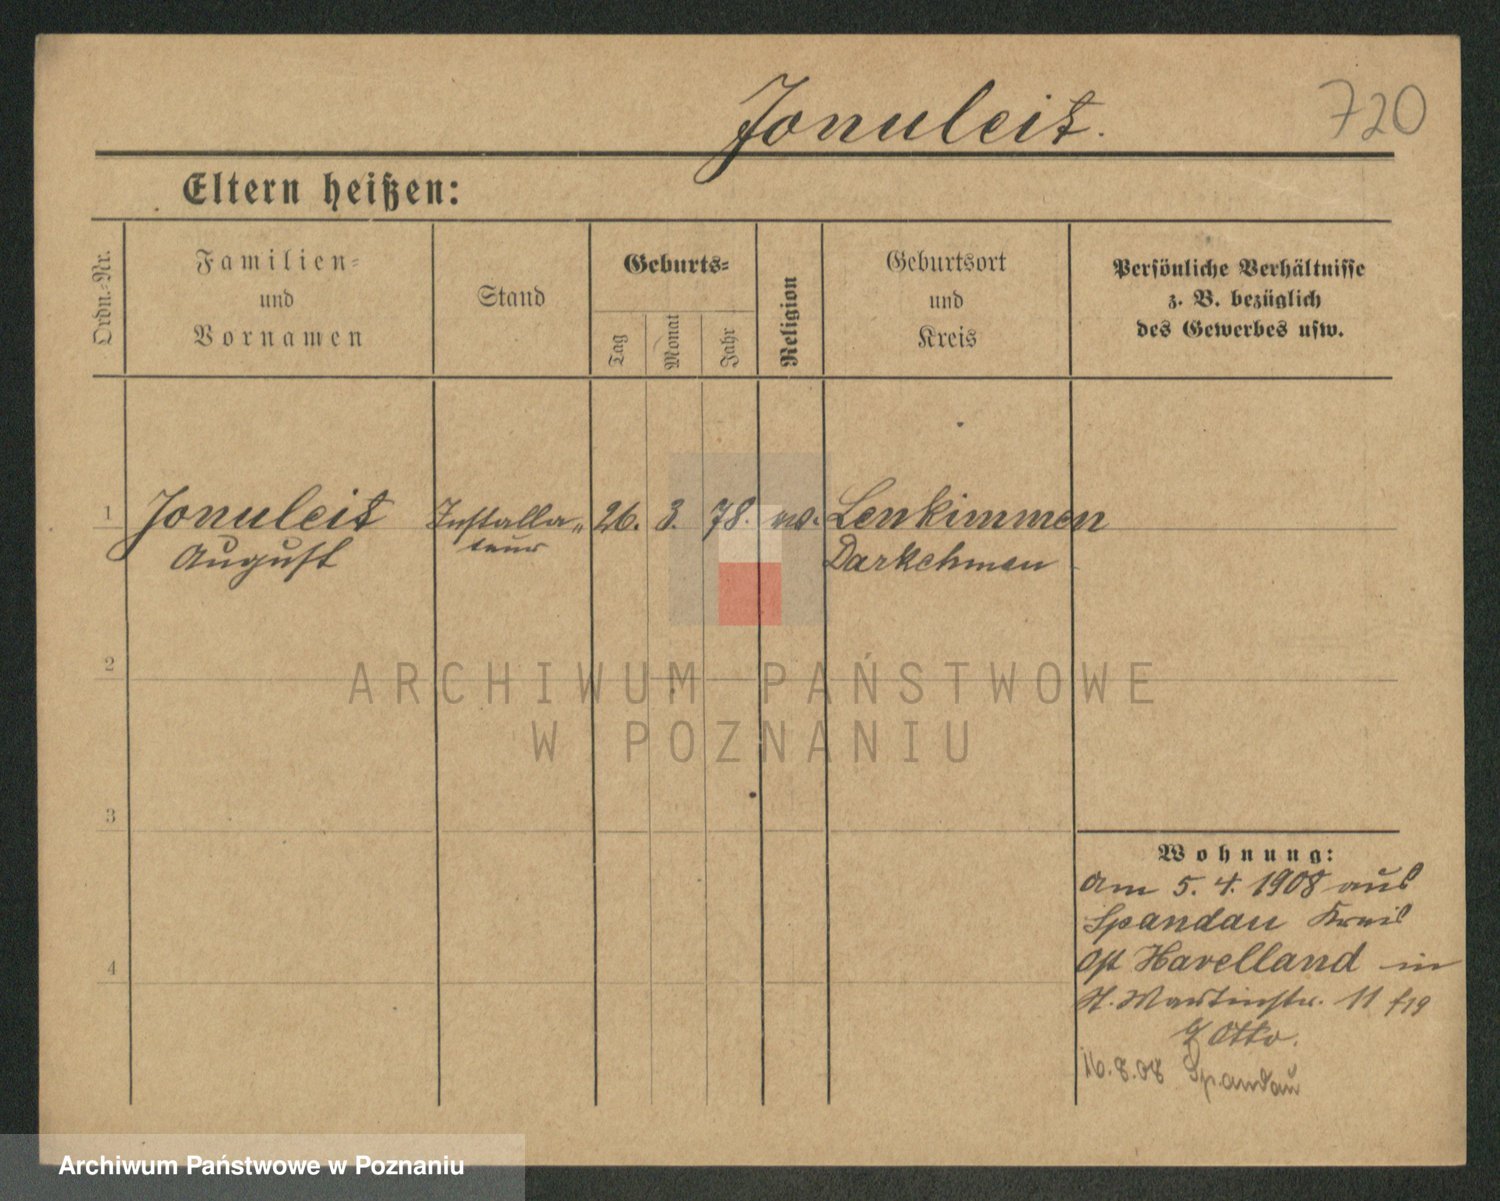 Jonuleit.
720
Eltern heißen:
Ordn.-Nr.
Familien-
und
Vornamen
Stand
Geburts-
Tag
Monat
Jahr
Religion
Geburtsort
und
Kreis
Persönliche Verhältnisse
z. B. bezüglich
des Gewerbes usw.
1 Jonuleit Installa- 26. 3. 78. ev. Lenkimmen
August teur Darkehmen
2
ARCHIWUM PAŃSTWOWE
W POZNANIU
3
4
Wohnung:
am 5. 4. 1908 aus
Spandau Kreis
Ost Havelland in
St. Martinstr. 11
Otto.
16.8.08 Spandau
Archiwum Państwowe w Poznaniu